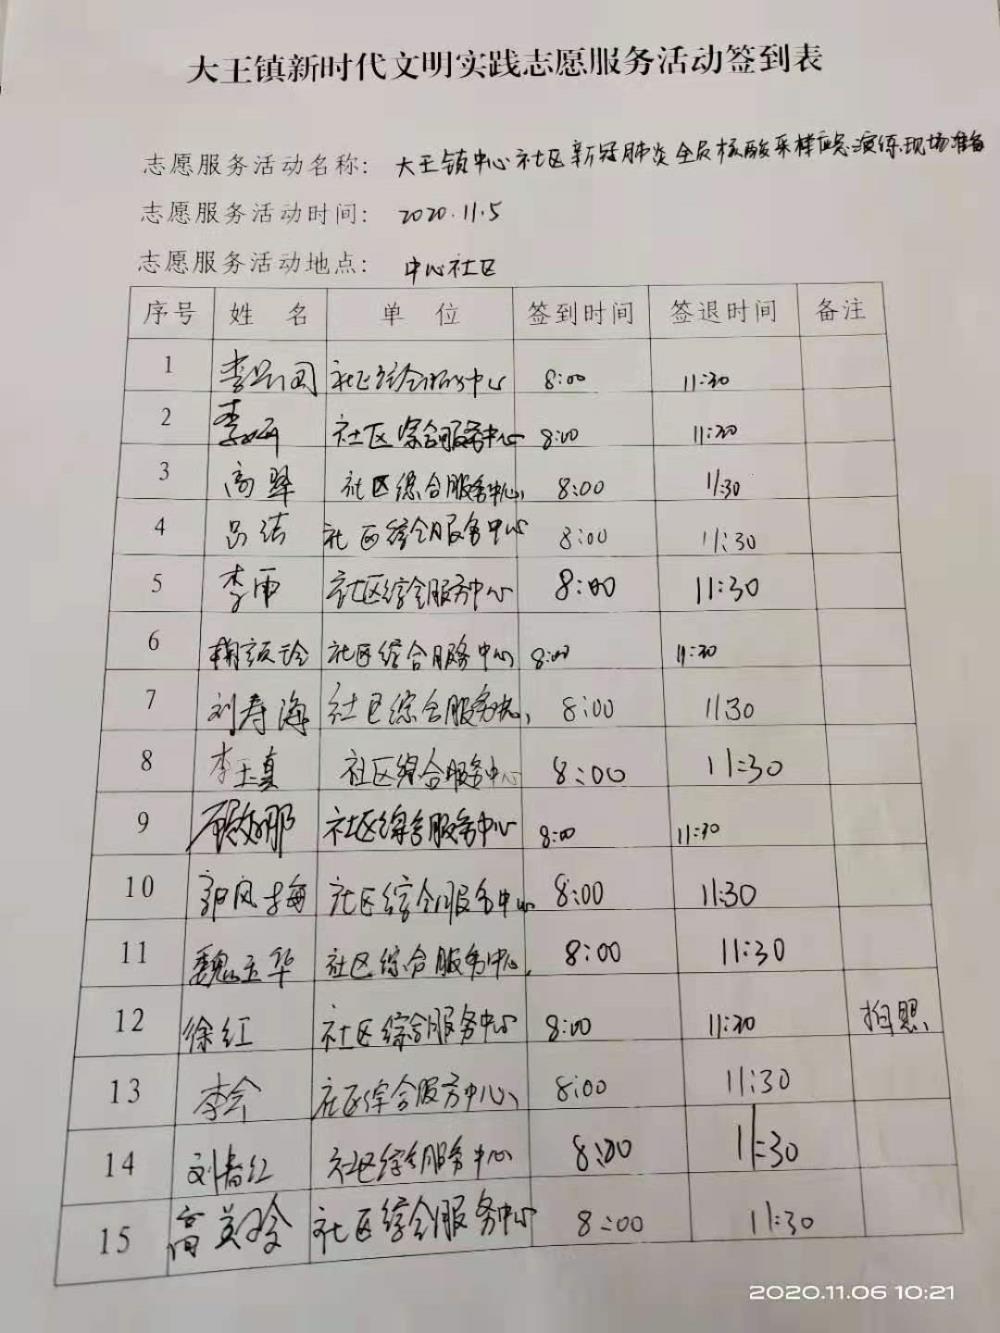 大王镇新时代文明实践志愿服务活动签到表
志愿服务活动名称: 大王镇中心社区新冠肺炎全员核酸采样应急演练现场准备
志愿服务活动时间: 2020.11.5
志愿服务活动地点: 中心社区
序号 姓 名 单 位 签到时间 签退时间 备注
1 社区综合服务中心 8:00 11:30
2 李妍 社区综合服务中心 8:00 11:30
3 高翠 社区综合服务中心 8:00 11:30
4 吕洁 社区综合服务中心 8:00 11:30
5 李雨 社区综合服务中心 8:00 11:30
6 社区综合服务中心 8:00 11:30
7 刘寿海 社区综合服务中心 8:00 11:30
8 李玉真 社区综合服务中心 8:00 11:30
9 社区综合服务中心 8:00 11:30
10 郭凤梅 社区综合服务中心 8:00 11:30
11 魏玉华 社区综合服务中心 8:00 11:30
12 徐红 社区综合服务中心 8:00 11:30 拍照
13 李会 社区综合服务中心 8:00 11:30
14 刘春红 社区综合服务中心 8:00 11:30
15 高英玲 社区综合服务中心 8:00 11:30
2020.11.06 10:21